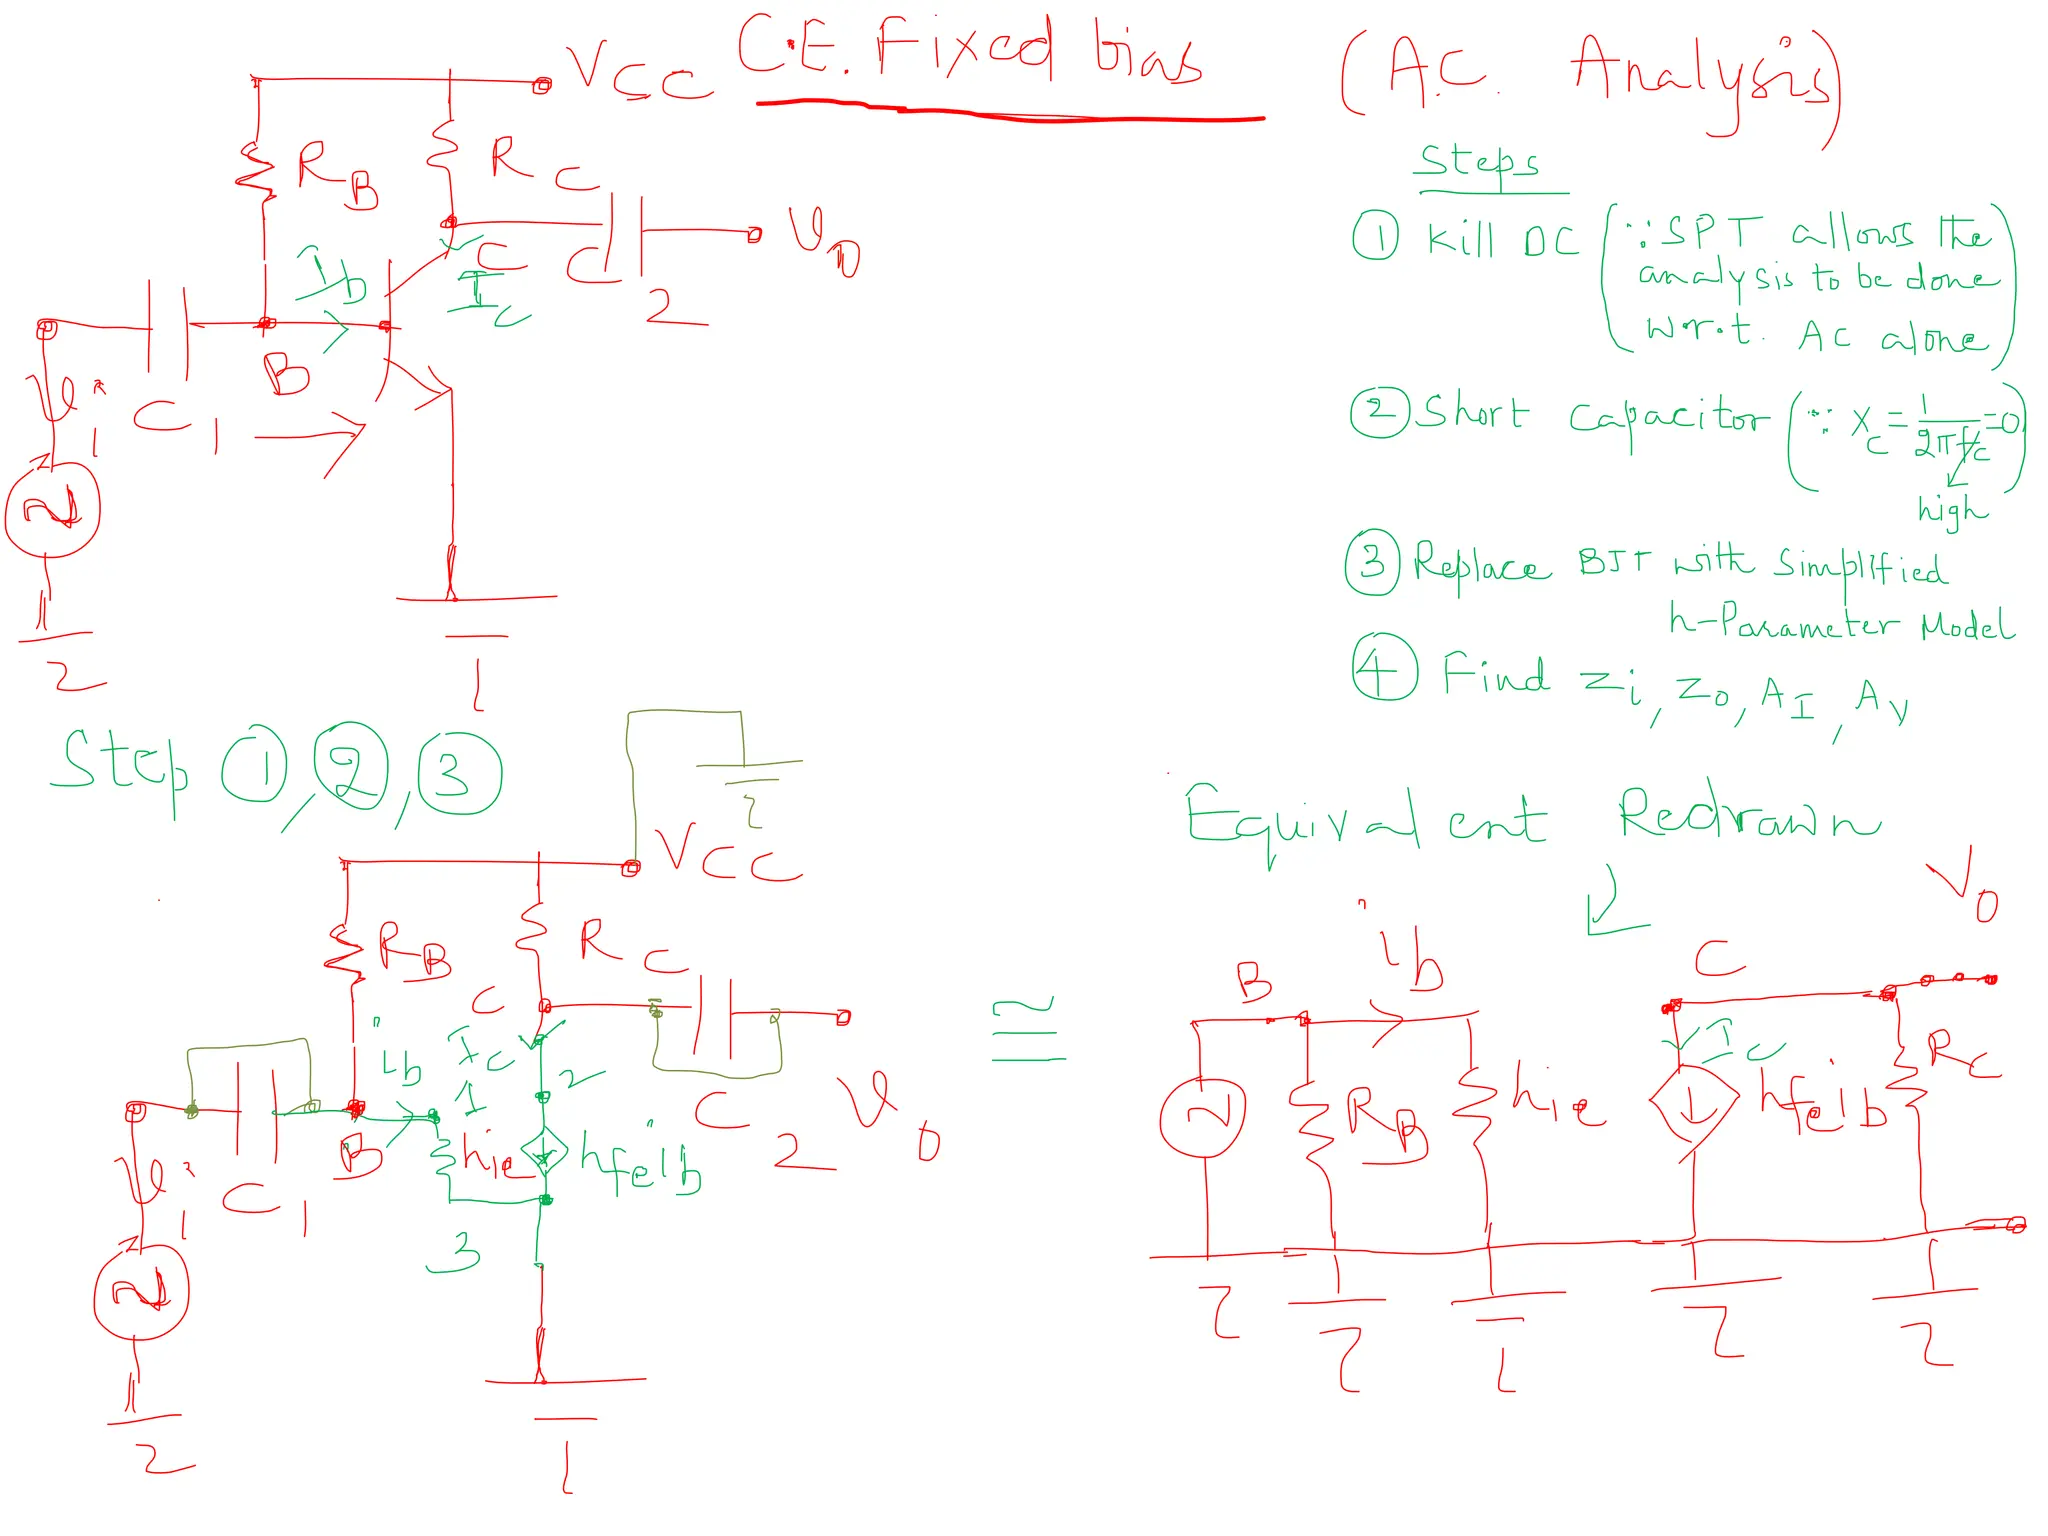 C.E. Fixed bias (A.C. Analysis)
VCC
RB
RC
C
C2
Vo
Ib
Ic
B
Vi
C1
Steps
① Kill DC (∵ SPT allows the
analysis to be done
w.r.t. AC alone)
② Short Capacitor (∵ Xc = 1/2πfc = 0)
high
③ Replace BJT with Simplified
h-Parameter Model
④ Find Zi, Zo, AI, AV
Step ①, ②, ③
VCC
RB
RC
C
Ic
ib
1
2
C2
Vo
B
hie
hfeib
Vi
C1
3
≅
Equivalent Redrawn
Vo
B
ib
C
Ic
RB
hie
hfeib
RC